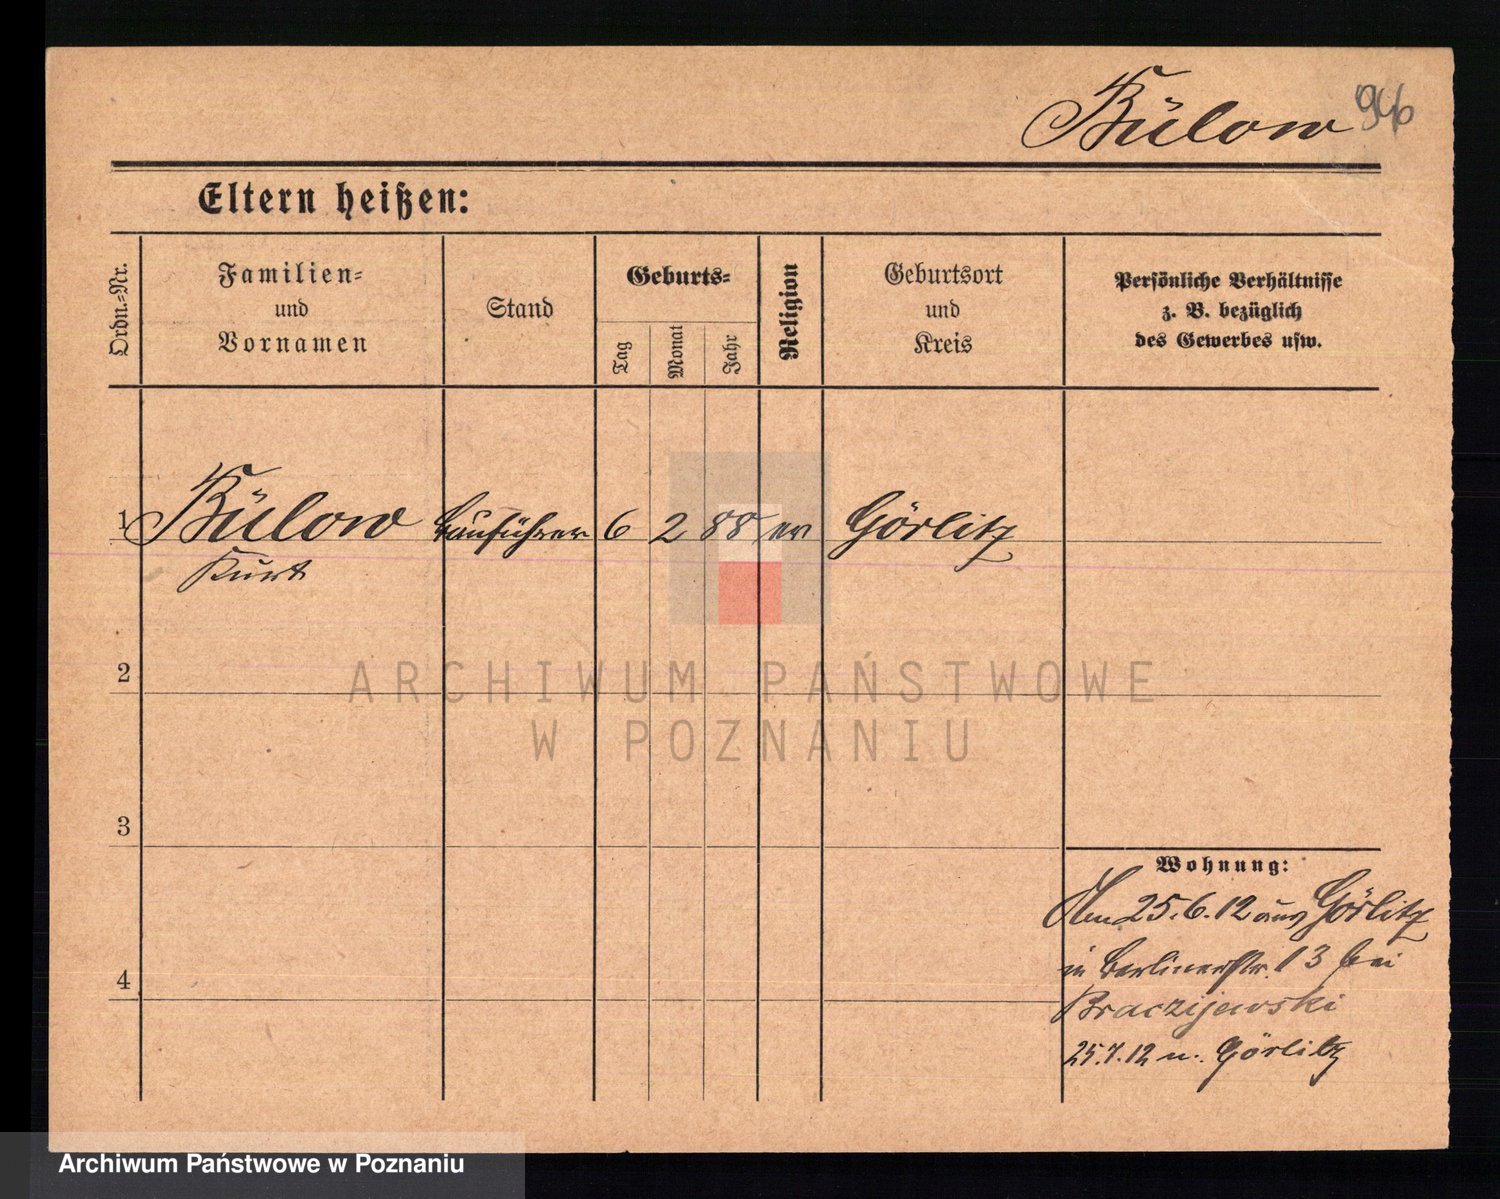 Bülow 946
Eltern heißen:
Ordn.=Nr.
Familien=
und
Vornamen
Stand
Geburts=
Tag
Monat
Jahr
Religion
Geburtsort
und
Kreis
Persönliche Verhältnisse
z. B. bezüglich
des Gewerbes usw.
1 Bülow Bauführer 6 2 88 ev Görlitz
Kurt
2
ARCHIWUM PAŃSTWOWE
W POZNANIU
3
Wohnung:
25.6.12 aus Görlitz
in Berlinerstr. 13 bei
4
Braczijewski
25.7.12 n. Görlitz
Archiwum Państwowe w Poznaniu